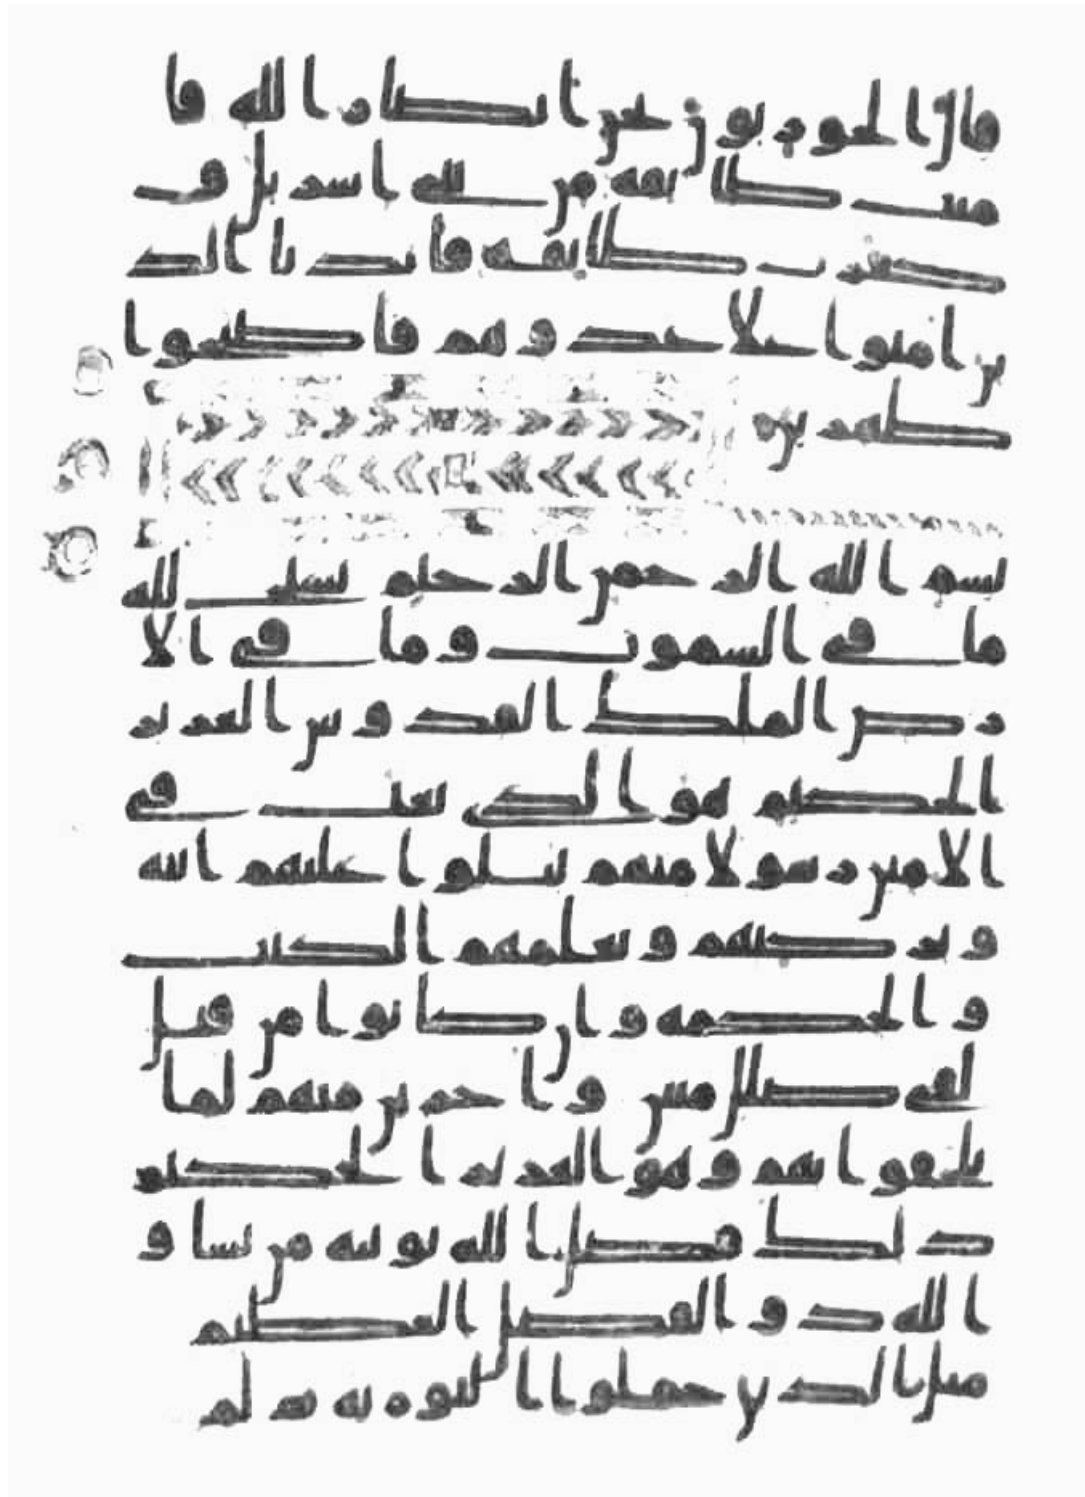 قال الحوريون نحن انصار الله فا
منت طايفه من بنى اسريل و
كفرت طايفه فايدنا الذ
ين امنوا علا عدوهم فاصبحوا
ظهرين
بسم الله الرحمن الرحيم يسبح لله
ما فى السموت وما فى الا
رض الملك القدوس العزيز
الحكيم هو الذى بعث فى
الامين رسولا منهم يتلوا عليهم ايته
ويزكيهم ويعلمهم الكتب
والحكمه وان كانوا من قبل
لفى ضلل مبين واخرين منهم لما
يلحقوا بهم وهو العزيز الحكيم
ذلك فضل الله يوتيه من يشا و
الله ذو الفضل العظيم
مثل الذين حملوا التوريه ثم لم